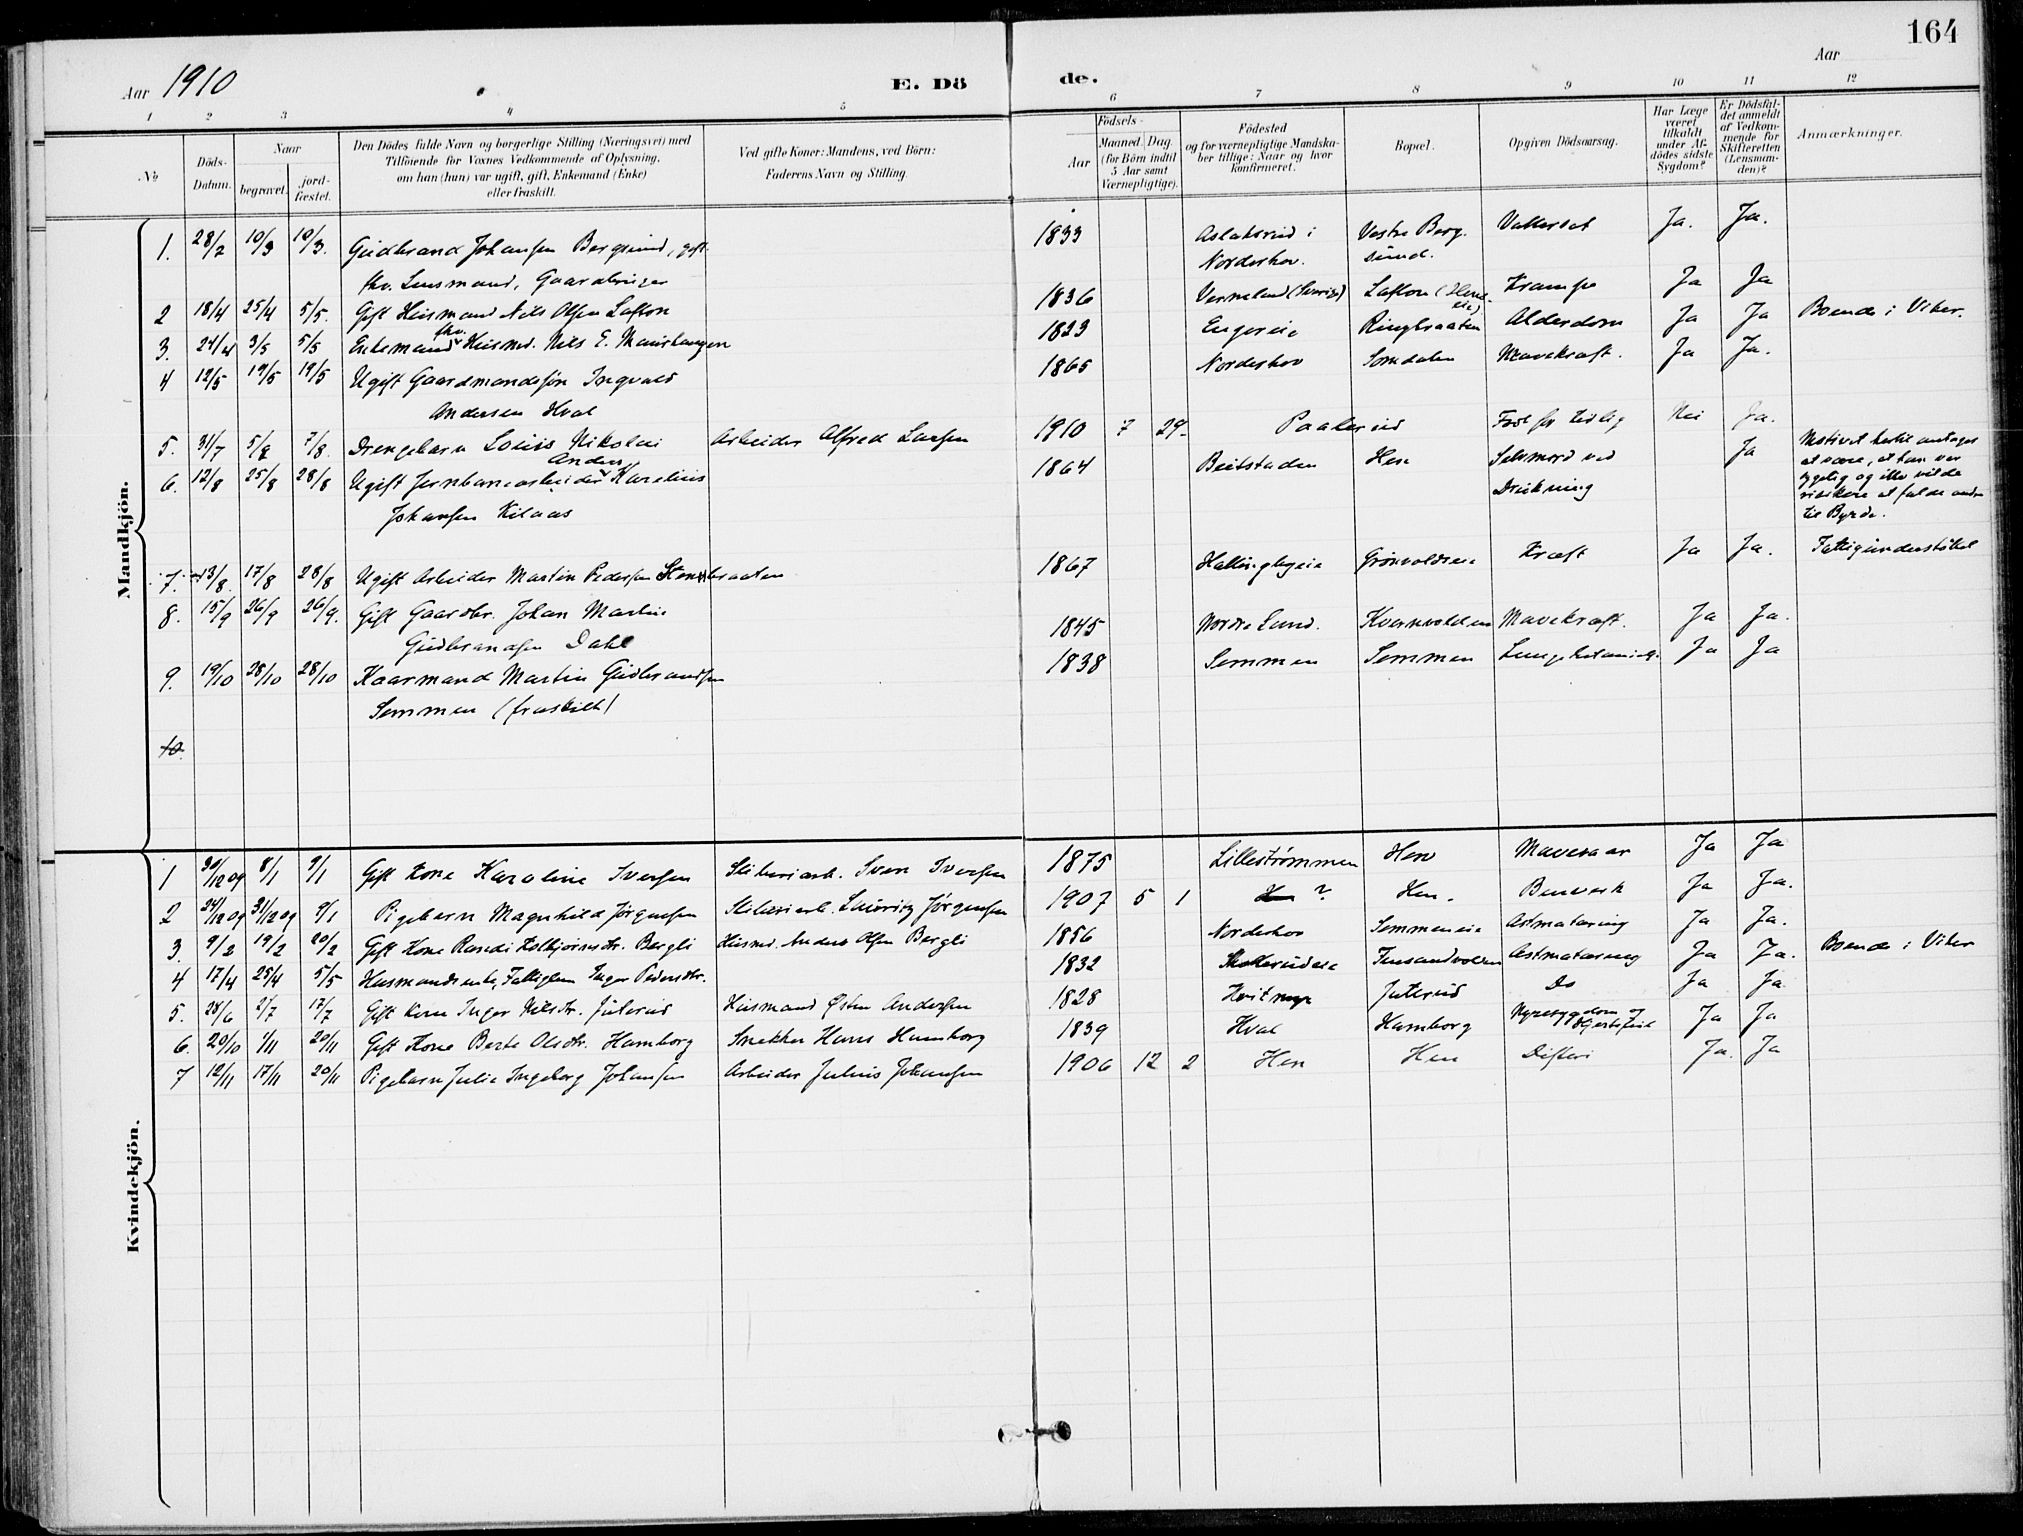 164
Aar 1910
E. Dö
de.
Aar
1 2 3 4 5 6 7 8 9 10 11 12
No
Döds-
Datum.
Naar
begravet.
jord-
fæstet.
Den Dödes fulde Navn og borgerlige Stilling (Næringsvei) med
Tilföiende for Voxnes Vedkommende af Oplysning,
om han (hun) var ugift, gift, Enkemand (Enke)
eller fraskilt.
Ved gifte Koner: Mandens, ved Börn:
Faderens Navn og Stilling.
Födsels-
Aar
Maaned. Dag.
(for Börn indtil
5 Aar samt
Værnepligtige).
Födested
og for værnepligtige Mandska-
ber tillige: Naar og hvor
konfirmeret.
Bopæl.
Opgiven Dödsaarsag.
Har Læge
været
tilkaldt
under Af-
dödes sidste
Sygdom?
Er Dödsfal-
det anmeldt
af Vedkom-
mende for
Skifteretten
(Lensman-
den)?
Anmærkninger.
Mandkjön.
1. 28/2 10/3 10/3. Gudbrand Johansen Bergsund, gift 1833 Aslaksrud i Vestre Berg- Vattersot Ja. Ja.
fhv. Lensmand, Gaardbruger Norderhov. sund.
2 18/4 25/4 5/5. Gift Husmand Nils Olsen Lafton 1836 Vermeland (Sverige) Lafton (Hens- Krampe Ja Ja
eie)
3. 24/4 3/5 5/5 Enkemand fhv. Husmd. Nils E. 1823 Engereie Ringbraaten Alderdom Ja Ja Boende i Viker.
4 12/5 19/5 19/5 Ugift Gaardmandssön Ingvald 1865 Norderhov Somdalen Mavekræft. Ja Ja.
Andersen Hval
5. 31/7 5/8 7/8. Drengebarn Louis Nikolai Arbeider Alfred Larsen 1910 7 29. Paalerud Født for tidlig Nei Ja.
6. 12/8 25/8 28/8 Ugift Jernbanearbeider Anders Karelius 1864 Beitstaden Hen Selvmord ved Ja Motivet hertil antages
Johansen Kilaas Drukning at være, at han var
sygelig og ikke vilde
risikere at falde andre
til Byrde.
7. 13/8. 17/8 28/8 Ugift Arbeider Martin Pedersen Stenbraaten 1867 Hallingbyeie Grønvoldseie Kræft Ja Ja. Fattigunderstøttet
8. 15/9 26/9 26/9. Gift Gaardbr. Johan Martin 1845 Nordre Lund. Kvernvolden Mavekræft. Ja Ja.
Gudbrandsen Dahl
9. 19/10 28/10 28/10 Kaarmand Martin Gudbrandsen 1838 Semmen Semmen Ja Ja
Semmen (fraskilt)
10.
Kvindekjön.
1 30/12 09 8/1 9/1 Gift Kone Karoline Iversen Sliberiarb. Sven Iversen 1875 Lillestrømmen Hen Mavesaar Ja Ja
2 24/12 09 31/12 09 9/1 Pigebarn Magnhild Jørgensen Sliberiarb. Lauritz Jørgensen 1907 5 1 Hen ? Hen. Benverk Ja Ja.
3. 9/2 19/2 20/2 Gift Kone Randi Kolbjørnsdtr. Bergli Husmd. Anders Olsen Bergli 1856 Norderhov Semmeneie Astmatæring Ja Ja.
4 17/4 25/4 5/5 Husmandsenke, Fattiglem Inger Pedersdtr. 1832 Astmatæring Ja Ja. Boende i Viker
5. 28/6 2/7 17/7 Gift Kone Inger Nilsdtr. Juterud Husmand Østen Andersen 1828 Juterud Do Ja Ja
6. 20/10 1/11 20/11 Gift Kone Berte Olsdtr. Hamborg Snekker Hans Hamborg 1839 Hval Hamborg Nyresygdom og Hjertefeil Ja Ja
7 12/11 17/11 20/11 Pigebarn Julie Ingeborg Johansen Arbeider Julius Johansen 1906 12 2 Hen Hen Difteri Ja. Ja